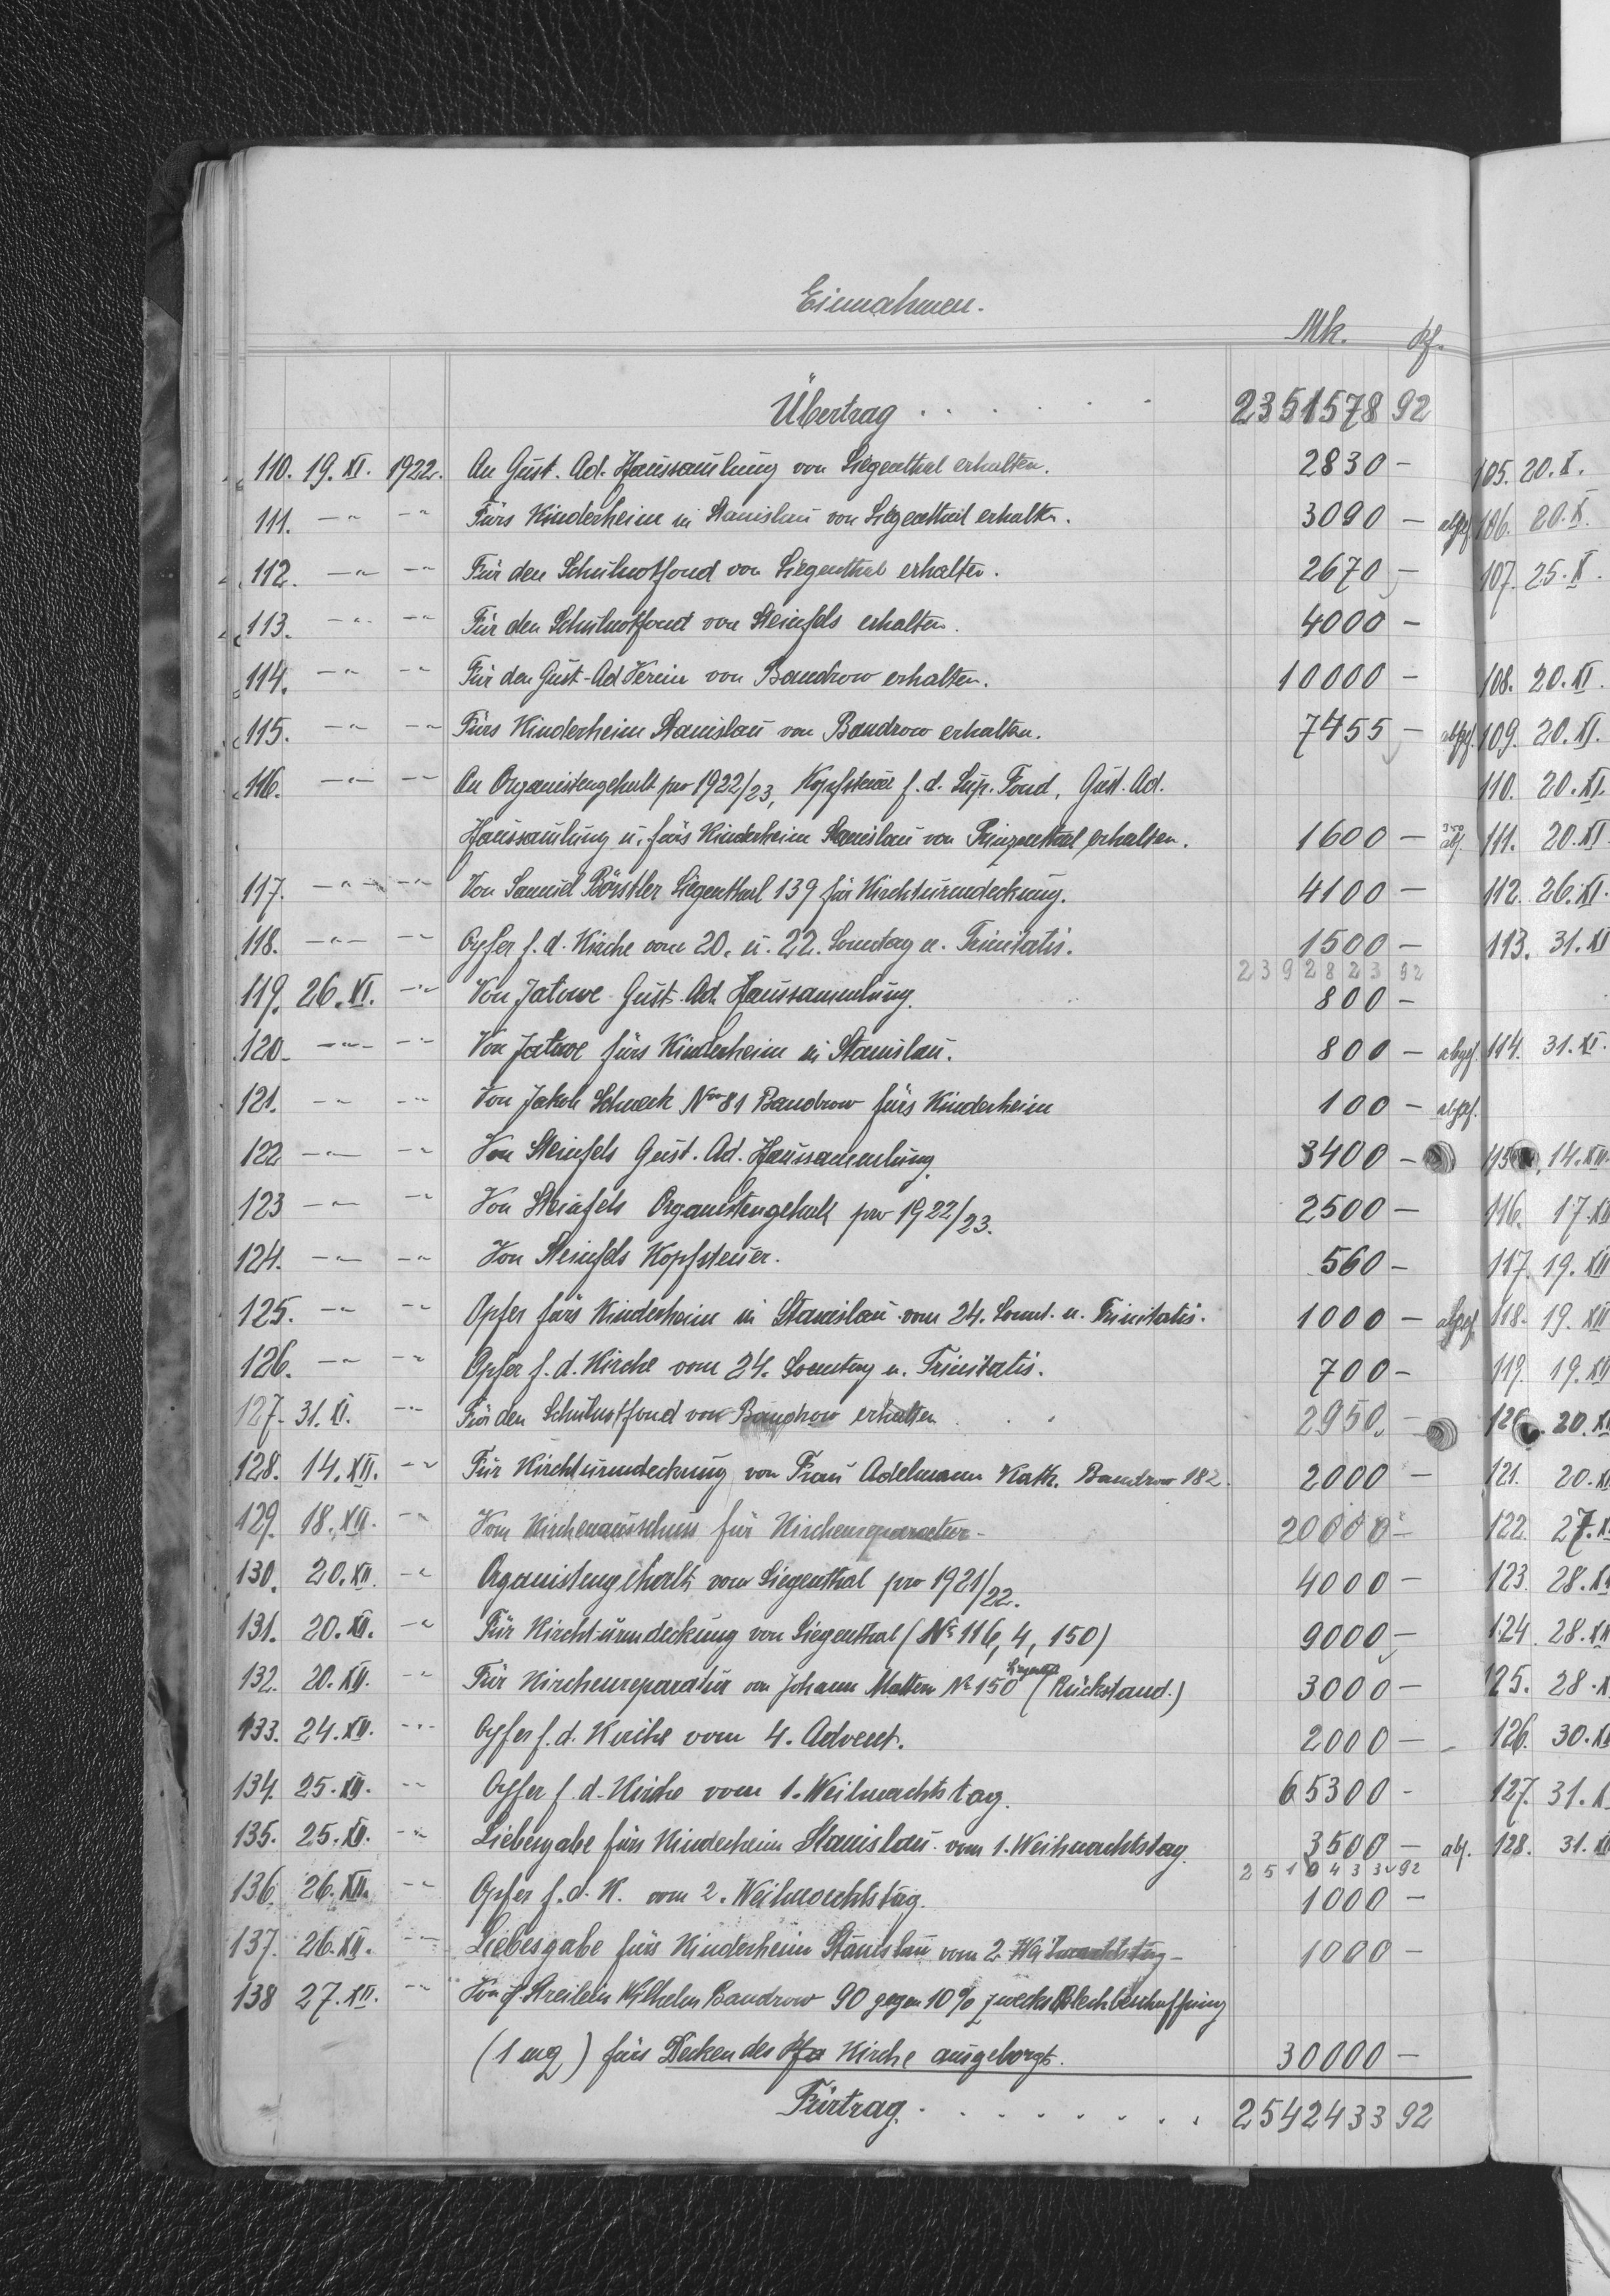 Einnahmen.
Mk. Pf.
Übertrag . . . . . . 2351578 92
110. 19. XI. 1922. An Gust. Ad. Haussamlung von Siegenthal erhalten. 2830 -
111. -"- -"- Fürs Kinderheim in Stanislau von Siegenthal erhalten. 3090 - abgef.
112. -"- -"- Für den Schulnotfond von Siegenthal erhalten. 2670 -
113. -"- -"- Für den Schulnotfond von Steinfels erhalten. 4000 -
114. -"- -"- Für den Gust-Ad Verein von Bandrow erhalten. 10000 -
115. -"- -"- Fürs Kinderheim Stanislau von Bandrow erhalten. 7455 - abgef.
116. -"- -"- An Organistengehalt pro 1922/23, Kopfsteuer f. d. Sup. Fond, Gust. Ad.
Haussamlung u. fürs Kinderheim Stanislau von Prinzenthal erhalten. 1600 - 300 abg.
117. -"- -"- Von Samuel Börstler Siegenthal 139 für Kirchturmdeckung. 4100 -
118. -"- -"- Opfer f. d. Kirche vom 20. u. 22. Sonntag n. Trinitatis. 1500 -
2392823 92
119. 26. XI. -"- Von Jatowe Gust. Ad. Haussammlung. 800 -
120. -"- -"- Von Jatowe fürs Kinderheim in Stanislau. 800 - abgef.
121. -"- -"- Von Jakob Schneck Nro 81 Bandrow fürs Kinderheim 100 - abgef.
122 -"- -"- Von Steinfels Gust. Ad. Haussammlung. 3400 -
123 -"- -"- Von Steinfels Organistengehalt pro 1922/23. 2500 -
124. -"- -"- Von Steinfels Kopfsteuer. 560 -
125. -"- -"- Opfer fürs Kinderheim in Stanislau vom 24. Sonnt. n. Trinitatis. 1000 - abgef.
126. -"- -"- Opfer f. d. Kirche vom 24. Sonntag n. Trinitatis. 700 -
127. 31. XI. -"- Für den Schulnotfond von Bandrow erhalten . . . 2950 -
128. 14. XII. -"- Für Kirchturmdeckung von Frau Adelmann Kath. Bandrow 182. 2000 -
129. 18. XII. -"- Vom Kirchenausschuss für Kirchenreparatur - 20000 -
130. 20. XII. -"- Organistengehalt vom Siegenthal pro 1921/22. 4000 -
131. 20. XII. -"- Für Kirchturmdeckung von Siegenthal (No 116, 4, 150) 9000 -
132. 20. XII. -"- Für Kirchenreparatur von Johann Mattern No 150 Siegenthal (Rückstand.) 3000 -
133. 24. XII. -"- Opfer f. d. Kirche vom 4. Advent. 2000 -
134. 25. XII. -"- Opfer f. d. Kirche vom 1. Weihnachtstag. 65300 -
135. 25. XII. -"- Liebesgabe fürs Kinderheim Stanislau vom 1. Weihnachtstag. 3500 - abg.
2510433 92
136. 26. XII. -"- Opfer f. d. K. vom 2. Weihnachtstag. 1000 -
137. 26. XII. -"- Liebesgabe fürs Kinderheim Stanislau vom 2. Weihnachtstag - 1000 -
138 27. XII. -"- Von J. Streilein Wilhelm Bandrow 90 gegen 10% zwecks Blechbeschaffung
(1 mq) fürs Decken des Kirche ausgeborgt. 30000 -
Fürtrag. . . . . . . . . 2542433 92
105. 20. X.
106. 20. X.
107. 25. X.
108. 20. XI.
109. 20. XI.
110. 20. XI.
111. 20. XI
112. 26. XI.
113. 31. XI
114. 31. XI.
115. 14. XII.
116. 17. XII
117. 19. XII
118. 19. XII
119. 19. XII
120. 20. XII
121. 20. XII
122. 27. X
123. 28. XII
124. 28. XII
125. 28. X
126. 30. XII
127. 31. X
128. 31. XII